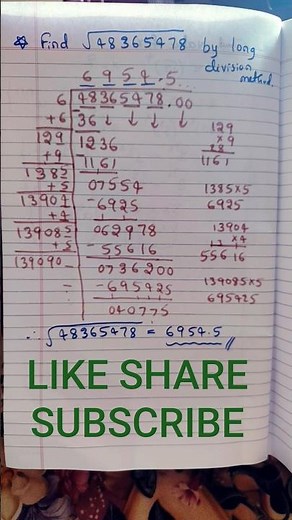 Find √48365478 by long
division
method.
6 9 5 4 . 5
6 √48365478.00
+6 36 ↓ ↓ ↓ ↓
129 1236 129
+9 -1161 ×9
1161
1385 07554 1385×5
+5 -6925 6925
13904 062978 13904
+4 -55616 ×4
139085 55616
+5 0736200
139090 -695425 139085×5
040775 695425
∴ √48365478 = 6954.5
LIKE SHARE
SUBSCRIBE